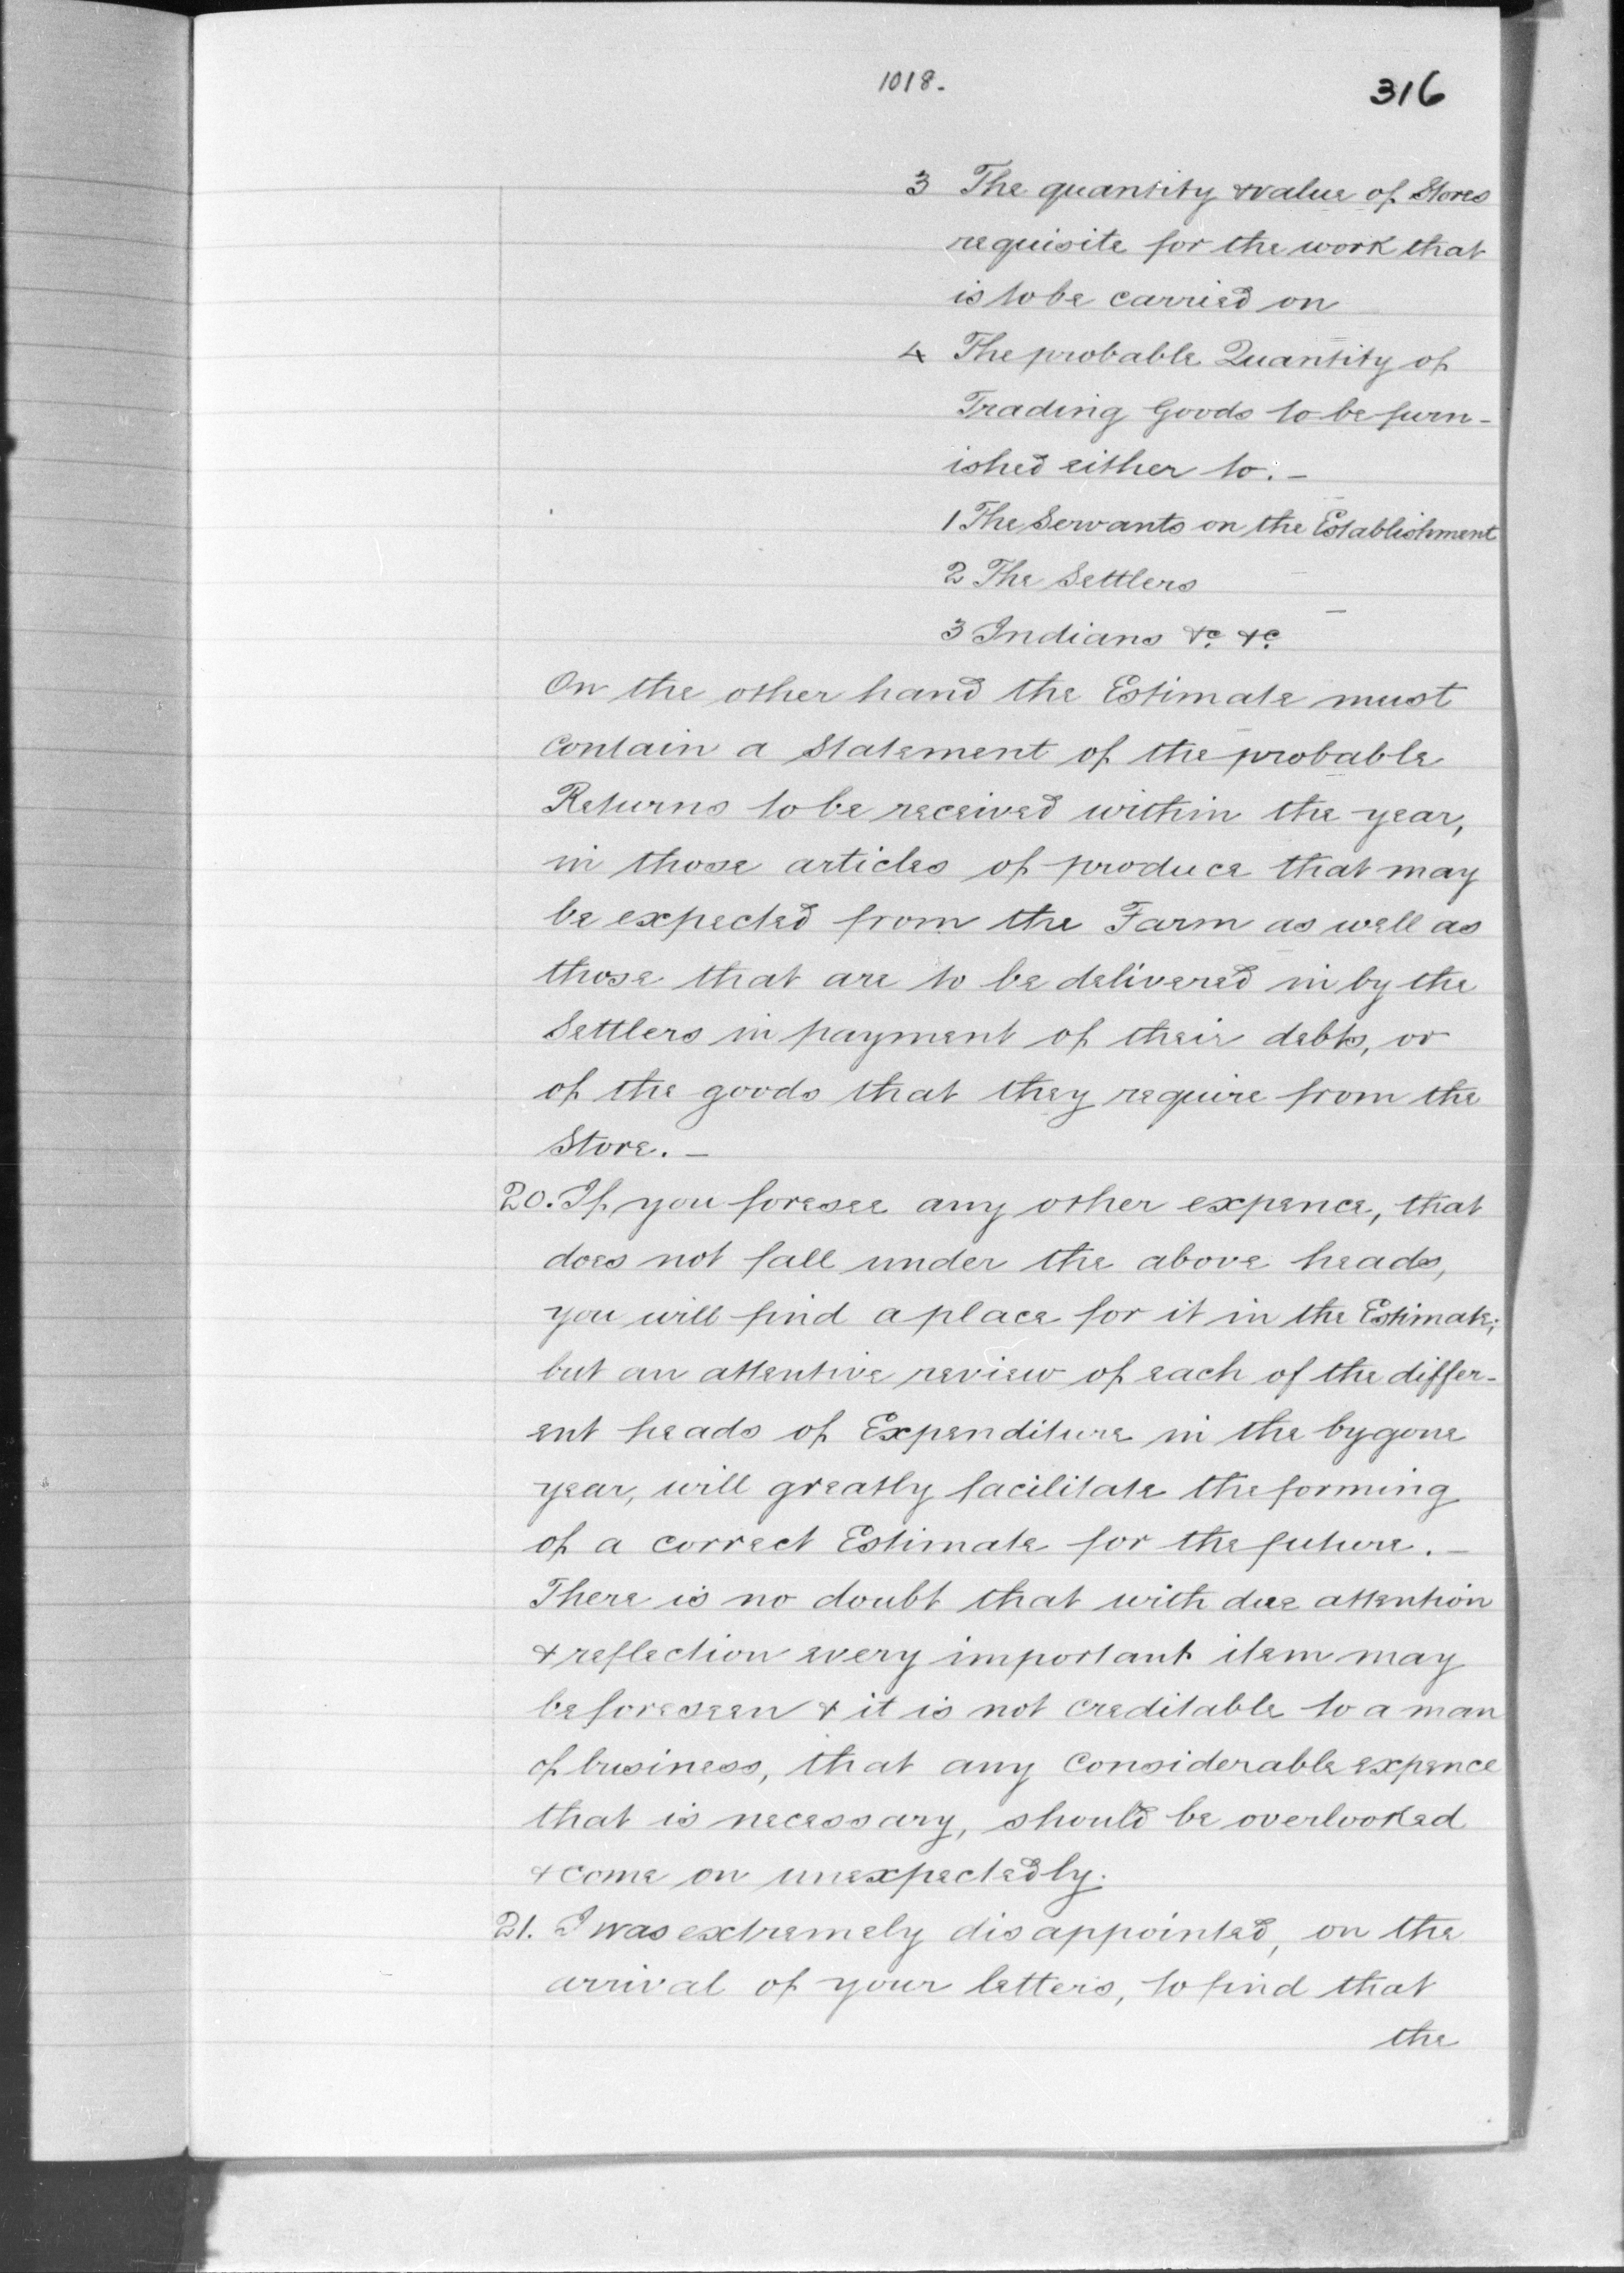 1018.
316
3 The quantity & value of Stores
requisite for the work that
is to be carried on
4 The probable Quantity of
Trading Goods to be furn-
ished either to. -
1 The Servants on the Establishment
2 The Settlers
3 Indians &c. &c.
On the other hand the Estimate must
contain a Statement of the probable
Returns to be received within the year,
in those articles of produce that may
be expected from the Farm as well as
those that are to be delivered in by the
Settlers in payment of their debts, or
of the goods that they require from the
Store. -
20. If you foresee any other expence, that
does not fall under the above heads,
you will find a place for it in the Estimate;
but an attentive review of each of the differ-
ent heads of Expenditure in the bygone
year, will greatly facilitate the forming
of a correct Estimate for the future. -
There is no doubt that with due attention
& reflection every important item may
be foreseen & it is not creditable to a man
of business, that any considerable expence
that is necessary, should be overlooked
& come on unexpectedly.
21. I was extremely disappointed, on the
arrival of your letters, to find that
the